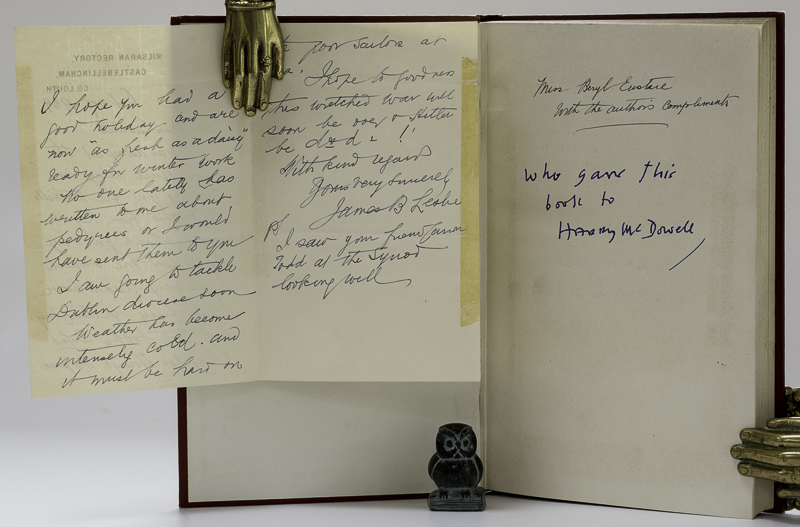 KILSARAN RECTORY,
CASTLEBELLINGHAM,
CO. LOUTH
I hope you had a
good holiday and are
now "as fresh as a daisy"
ready for winter work
No one lately has
written to me about
pedigrees or I would
have sent them to you
I am going to tackle
Dublin diocese soon
Weather has become
intensely cold. and
it must be hard on
poor sailors at
I hope to goodness
this wretched war will
soon be over & Hitler
be
With kind regards
Yours very sincerely
James B Leslie
PS
I saw your friend
Todd at the Synod
looking well
Miss Beryl Eustace
With the author's compliments
who gave this
book to
Harry McDowell